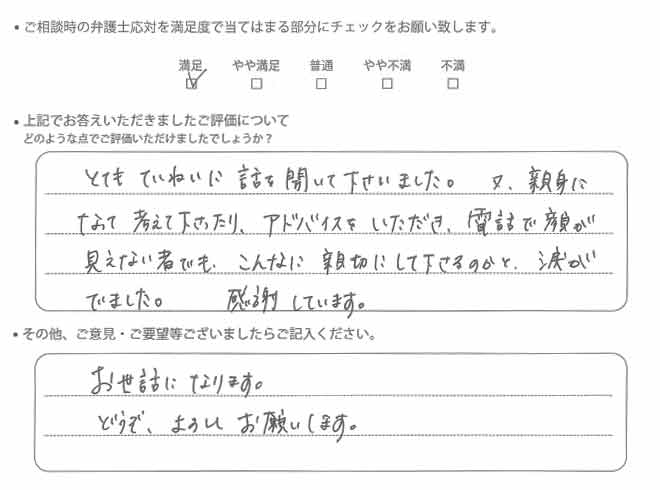 • ご相談時の弁護士応対を満足度で当てはまる部分にチェックをお願い致します。
満足 やや満足 普通 やや不満 不満
☑ □ □ □ □
• 上記でお答えいただきましたご評価について
どのような点でご評価いただけましたでしょうか？
とても ていねいに 話を 聞いて下さいました。 又、親身に
なって 考えて下さったり、アドバイスを いただき、電話で顔が
見えない者でも、こんなに 親切にして下さるのかと、涙が
でました。 感謝しています。
• その他、ご意見・ご要望等ございましたらご記入ください。
お世話になります。
どうぞ、よろしく お願いします。